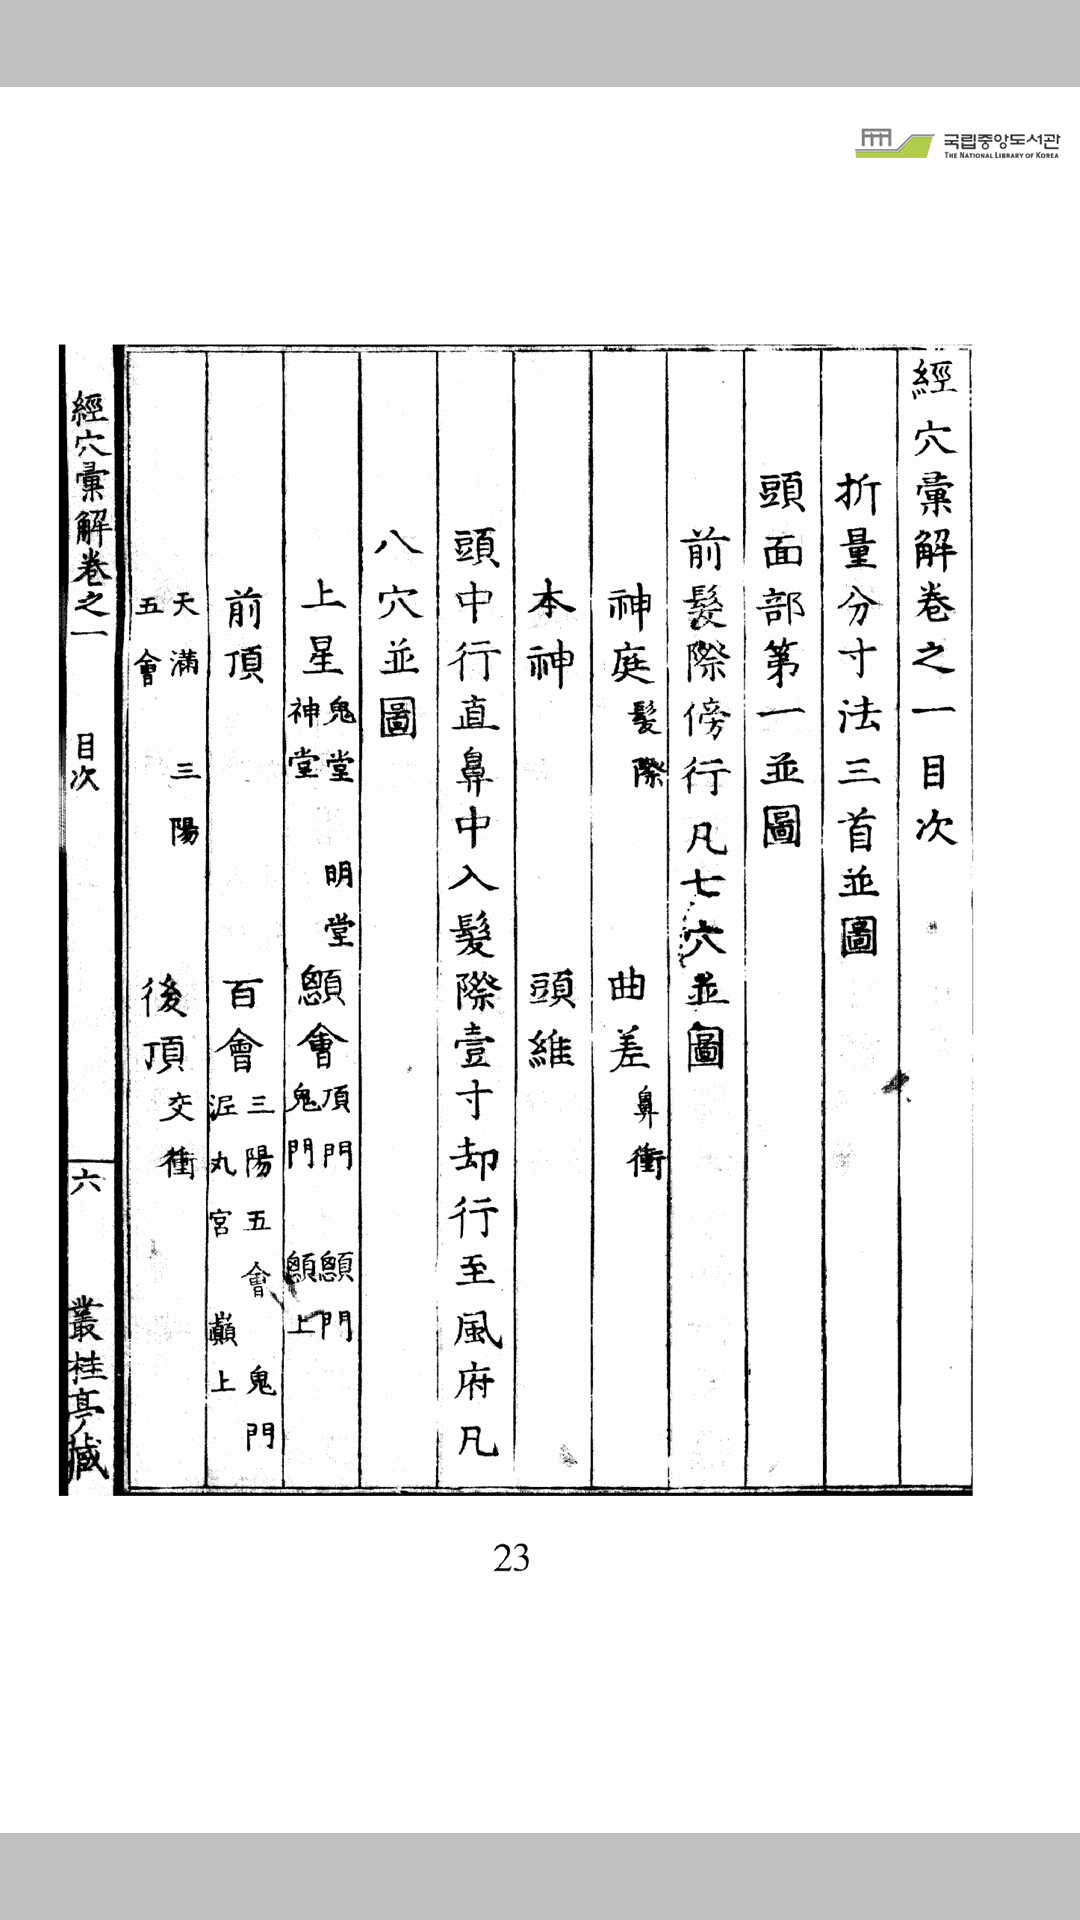 국립중앙도서관
THE NATIONAL LIBRARY OF KOREA
經穴彙解卷之一目次
折量分寸法三首並圖
頭面部第一並圖
前髮際傍行凡七穴並圖
神庭 髮際 曲差 鼻衝
本神 頭維
頭中行直鼻中入髮際壹寸却行至風府凡
八穴並圖
上星 鬼堂 明堂 神堂 顖會 頂門 顖門 鬼門 顖上
前頂 百會 三陽五會 鬼門 泥丸宮 巓上
天滿 三陽 五會 後頂 交衝
經穴彙解卷之一 目次 六 叢桂亭藏
23